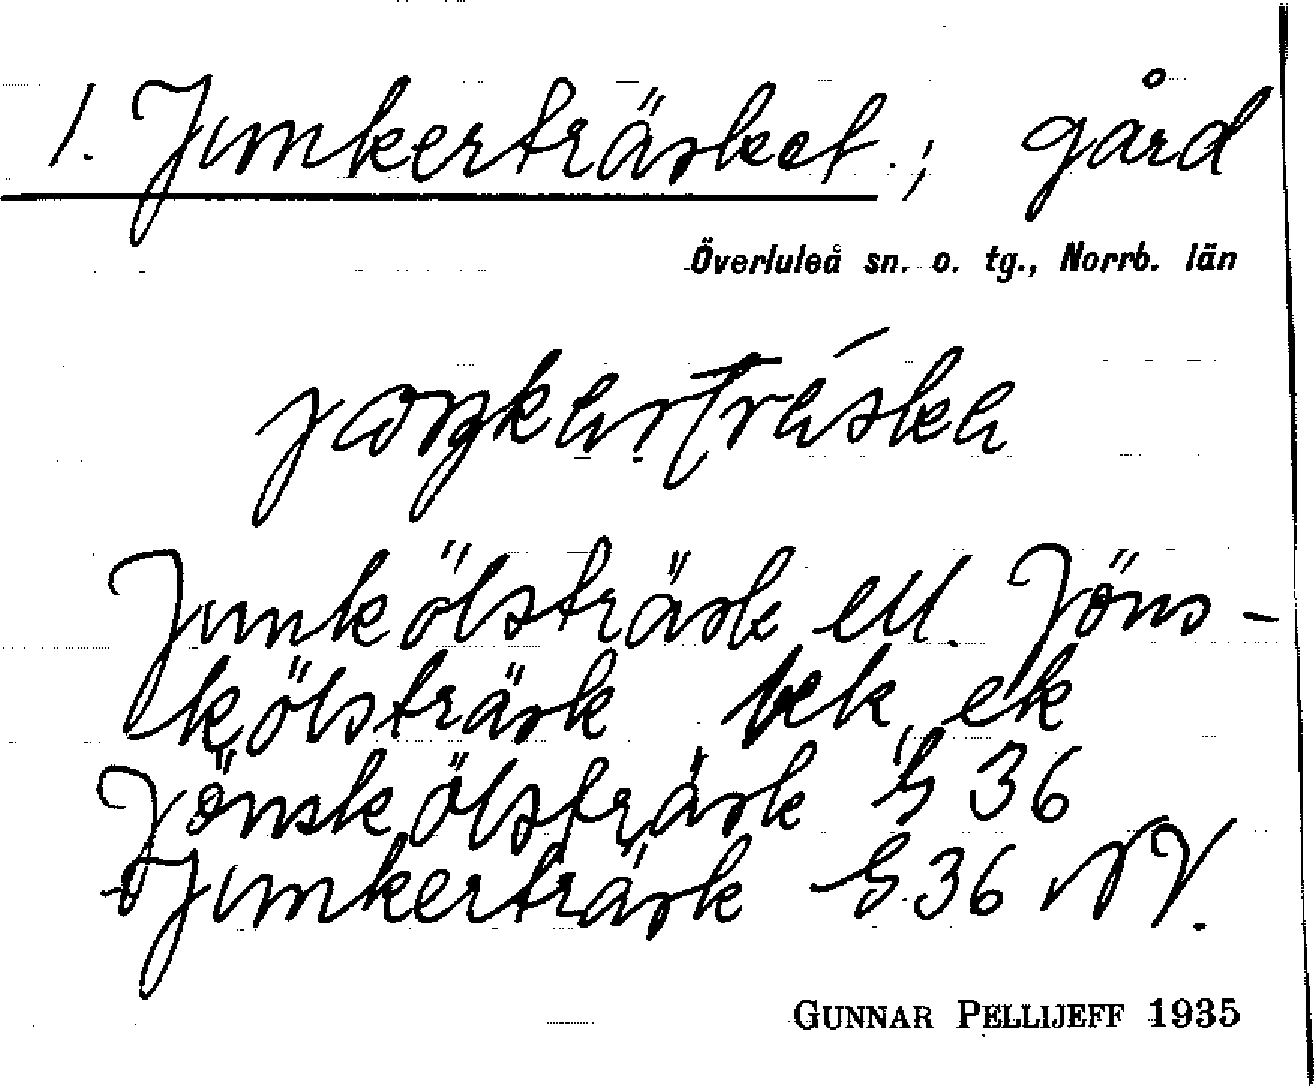 1. Junkerträsket; gård
Överluleå sn. o. tg., Norrb. län
Junkölsträsk ell. Jöns-
kölsträsk ek
Jönskölsträsk 36
Junkerträsk 36 NV.
GUNNAR PELLIJEFF 1935